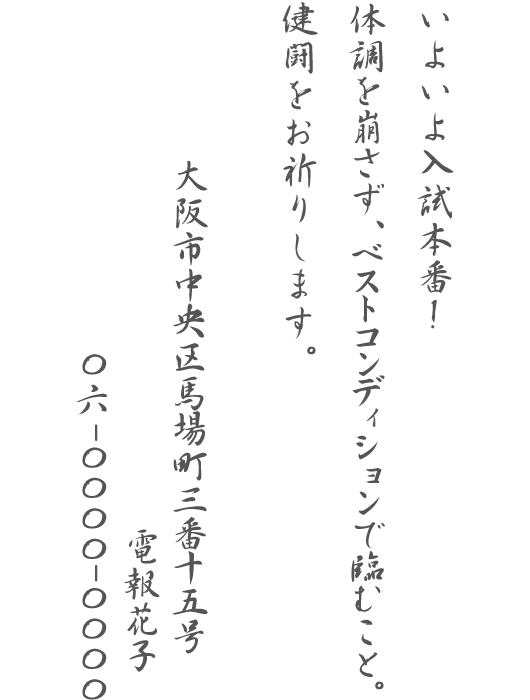 いよいよ入試本番！
体調を崩さず、ベストコンディションで臨むこと。
健闘をお祈りします。
大阪市中央区馬場町三番十五号
電報花子
〇六－〇〇〇〇－〇〇〇〇